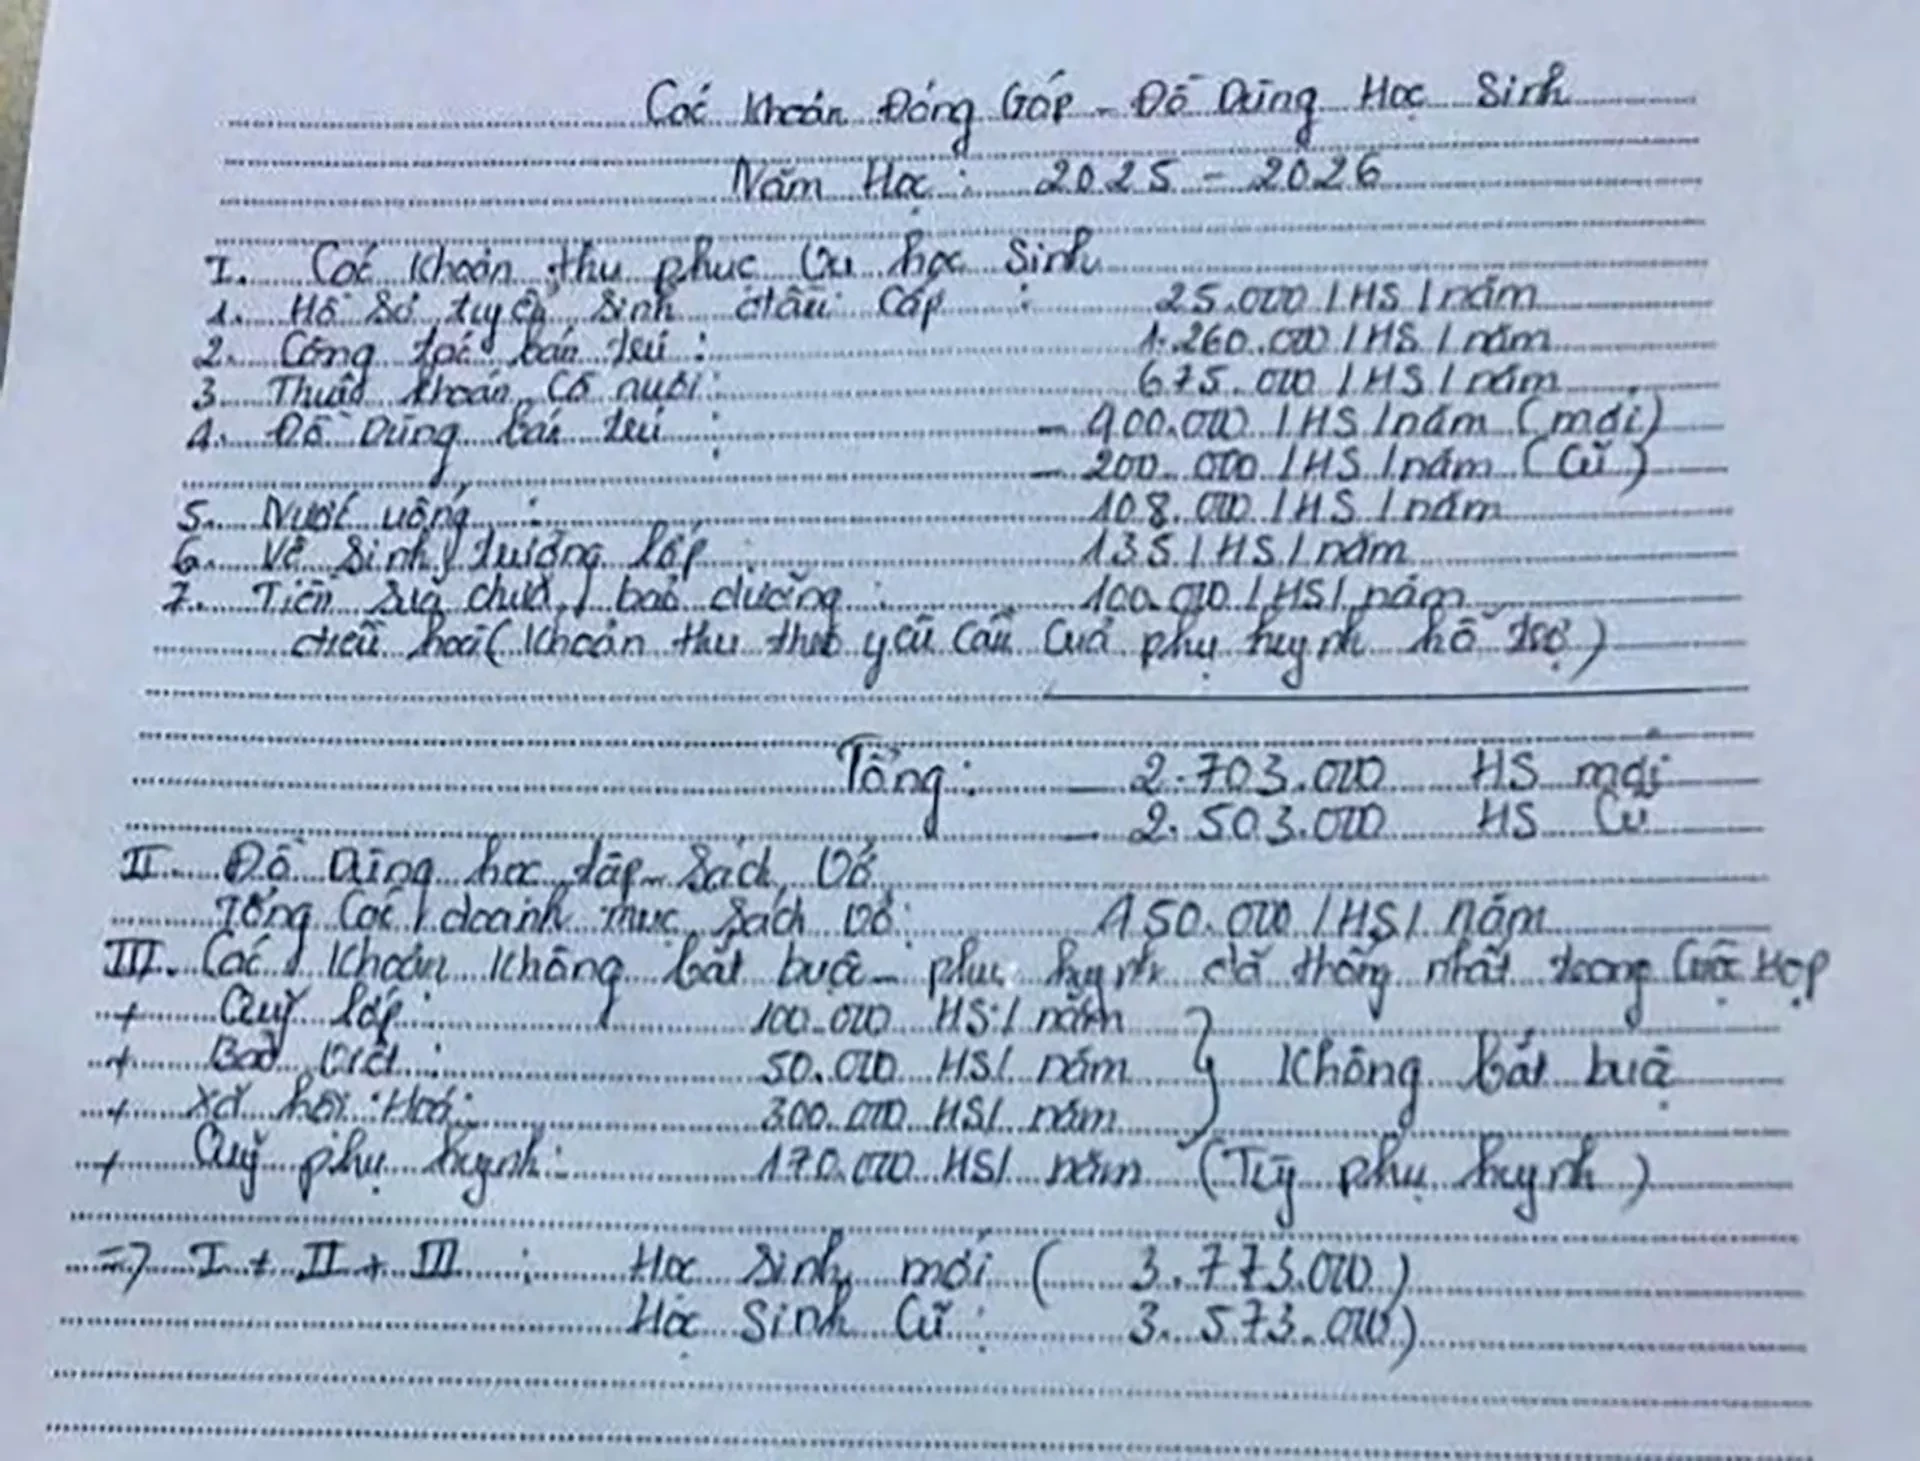 Các Khoản Đóng Góp - Đồ Dùng Học Sinh
Năm Học : 2025 - 2026
I. Các Khoản thu phục vụ học Sinh
1. Hồ Sơ tuyển Sinh đầu Cấp : 25.000 / HS / năm
2. Công tác bán trú : 1.260.000 / HS / năm
3. Thuê khoán Cô nuôi : 675.000 / HS / năm
4. Đồ Dùng bán trú : - 400.000 / HS / năm (mới)
- 200.000 / HS / năm (Cũ)
5. Nước uống : 108.000 / HS / năm
6. Vệ Sinh trường lớp : 135 / HS / năm
7. Tiền Sửa chữa, bảo dưỡng : 100.000 / HS / năm
điều hoà (Khoản thu theo yêu Cầu Của phụ huynh hỗ trợ)
Tổng : - 2.703.000 HS mới
- 2.503.000 HS Cũ
II. Đồ Dùng học tập - Sách Vở
Tổng Các doanh mục Sách Vở : 450.000 / HS / năm
III. Các Khoản Không bắt buộc - phụ huynh đã thống nhất trong Cuộc Họp
+ Quỹ lớp : 100.000 HS / năm
+ Bảo Việt : 50.000 HS / năm } Không bắt buộc
+ Xã hội Hoá : 300.000 HS / năm
+ Quỹ phụ huynh : 170.000 HS / năm (Tùy phụ huynh)
=> I + II + III : Học Sinh mới ( 3.773.000 )
Học Sinh Cũ : 3.573.000 )